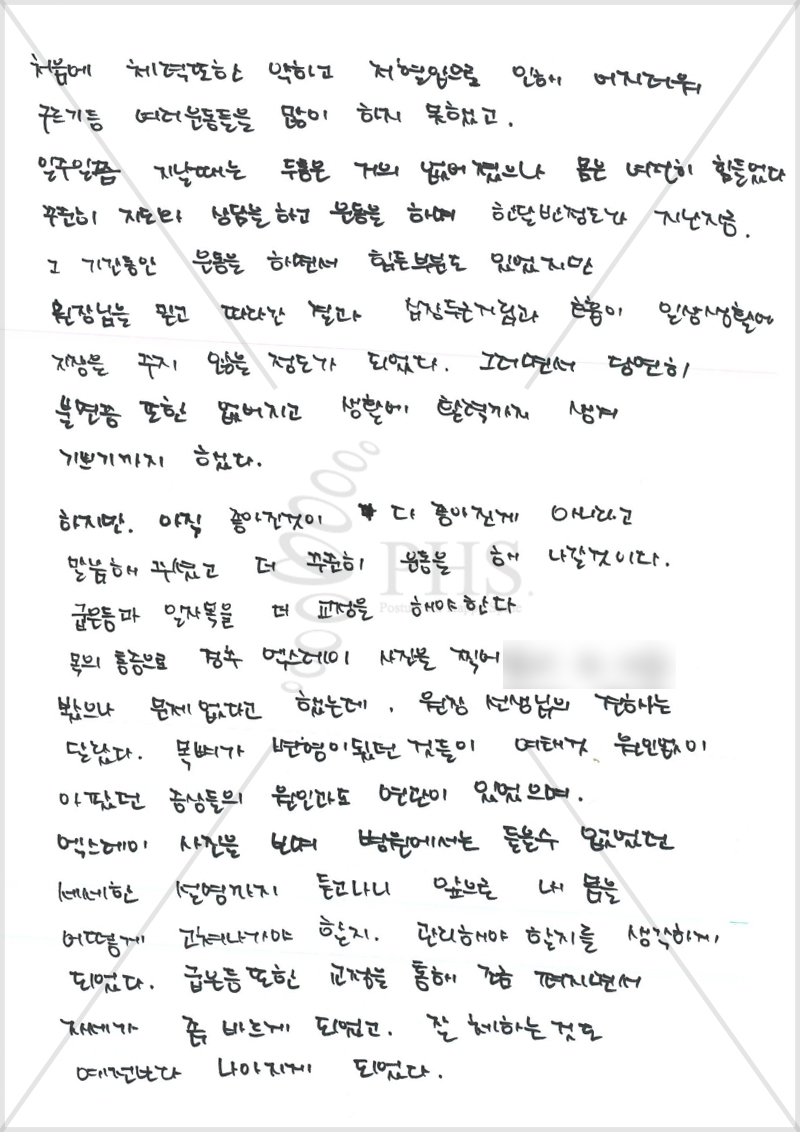 처음에 체력또한 약하고 저혈압으로 인해 어지러워
구르기등 여러운동들을 많이 하지 못했고.
일주일쯤 지날때는 두통은 거의 없어졌으나 몸은 여전히 힘들었다
꾸준히 지도와 상담을하고 운동을 하며 한달반정도가 지난지금.
그 기간동안 운동을 하면서 힘든부분도 있었지만
원장님을 믿고 따라간 결과 심장두근거림과 흉통이 일상생활에
지장을 주지 않을 정도가 되었다. 그러면서 당연히
불면증 또한 없어지고 생활에 활력까지 생겨
기쁘기까지 하였다.
하지만. 아직 좋아진것이 다 좋아진게 아니라고
말씀해 주셨고 더 꾸준히 운동을 해 나갈것이다.
굽은등과 일자목을 더 교정을 해야한다
PHS
목의 통증으로 경추 엑스레이 사진을 찍어
봤으나 문제없다고 했는데. 원장 선생님의 견해는
달랐다. 목뼈가 변형이됬던 것들이 여태것 원인없이
아팠던 증상들의 원인과도 연관이 있었으며.
엑스레이 사진을 보며 병원에서는 들을수 없었던
세세한 설명까지 듣고나니 앞으로 내 몸을
어떻게 고쳐나가야 할지. 관리해야 할지를 생각하게
되었다. 굽은등또한 교정을 통해 조금 펴지면서
자세가 좀 바르게 되었고. 잘 체하는것도
예전보다 나아지게 되었다.